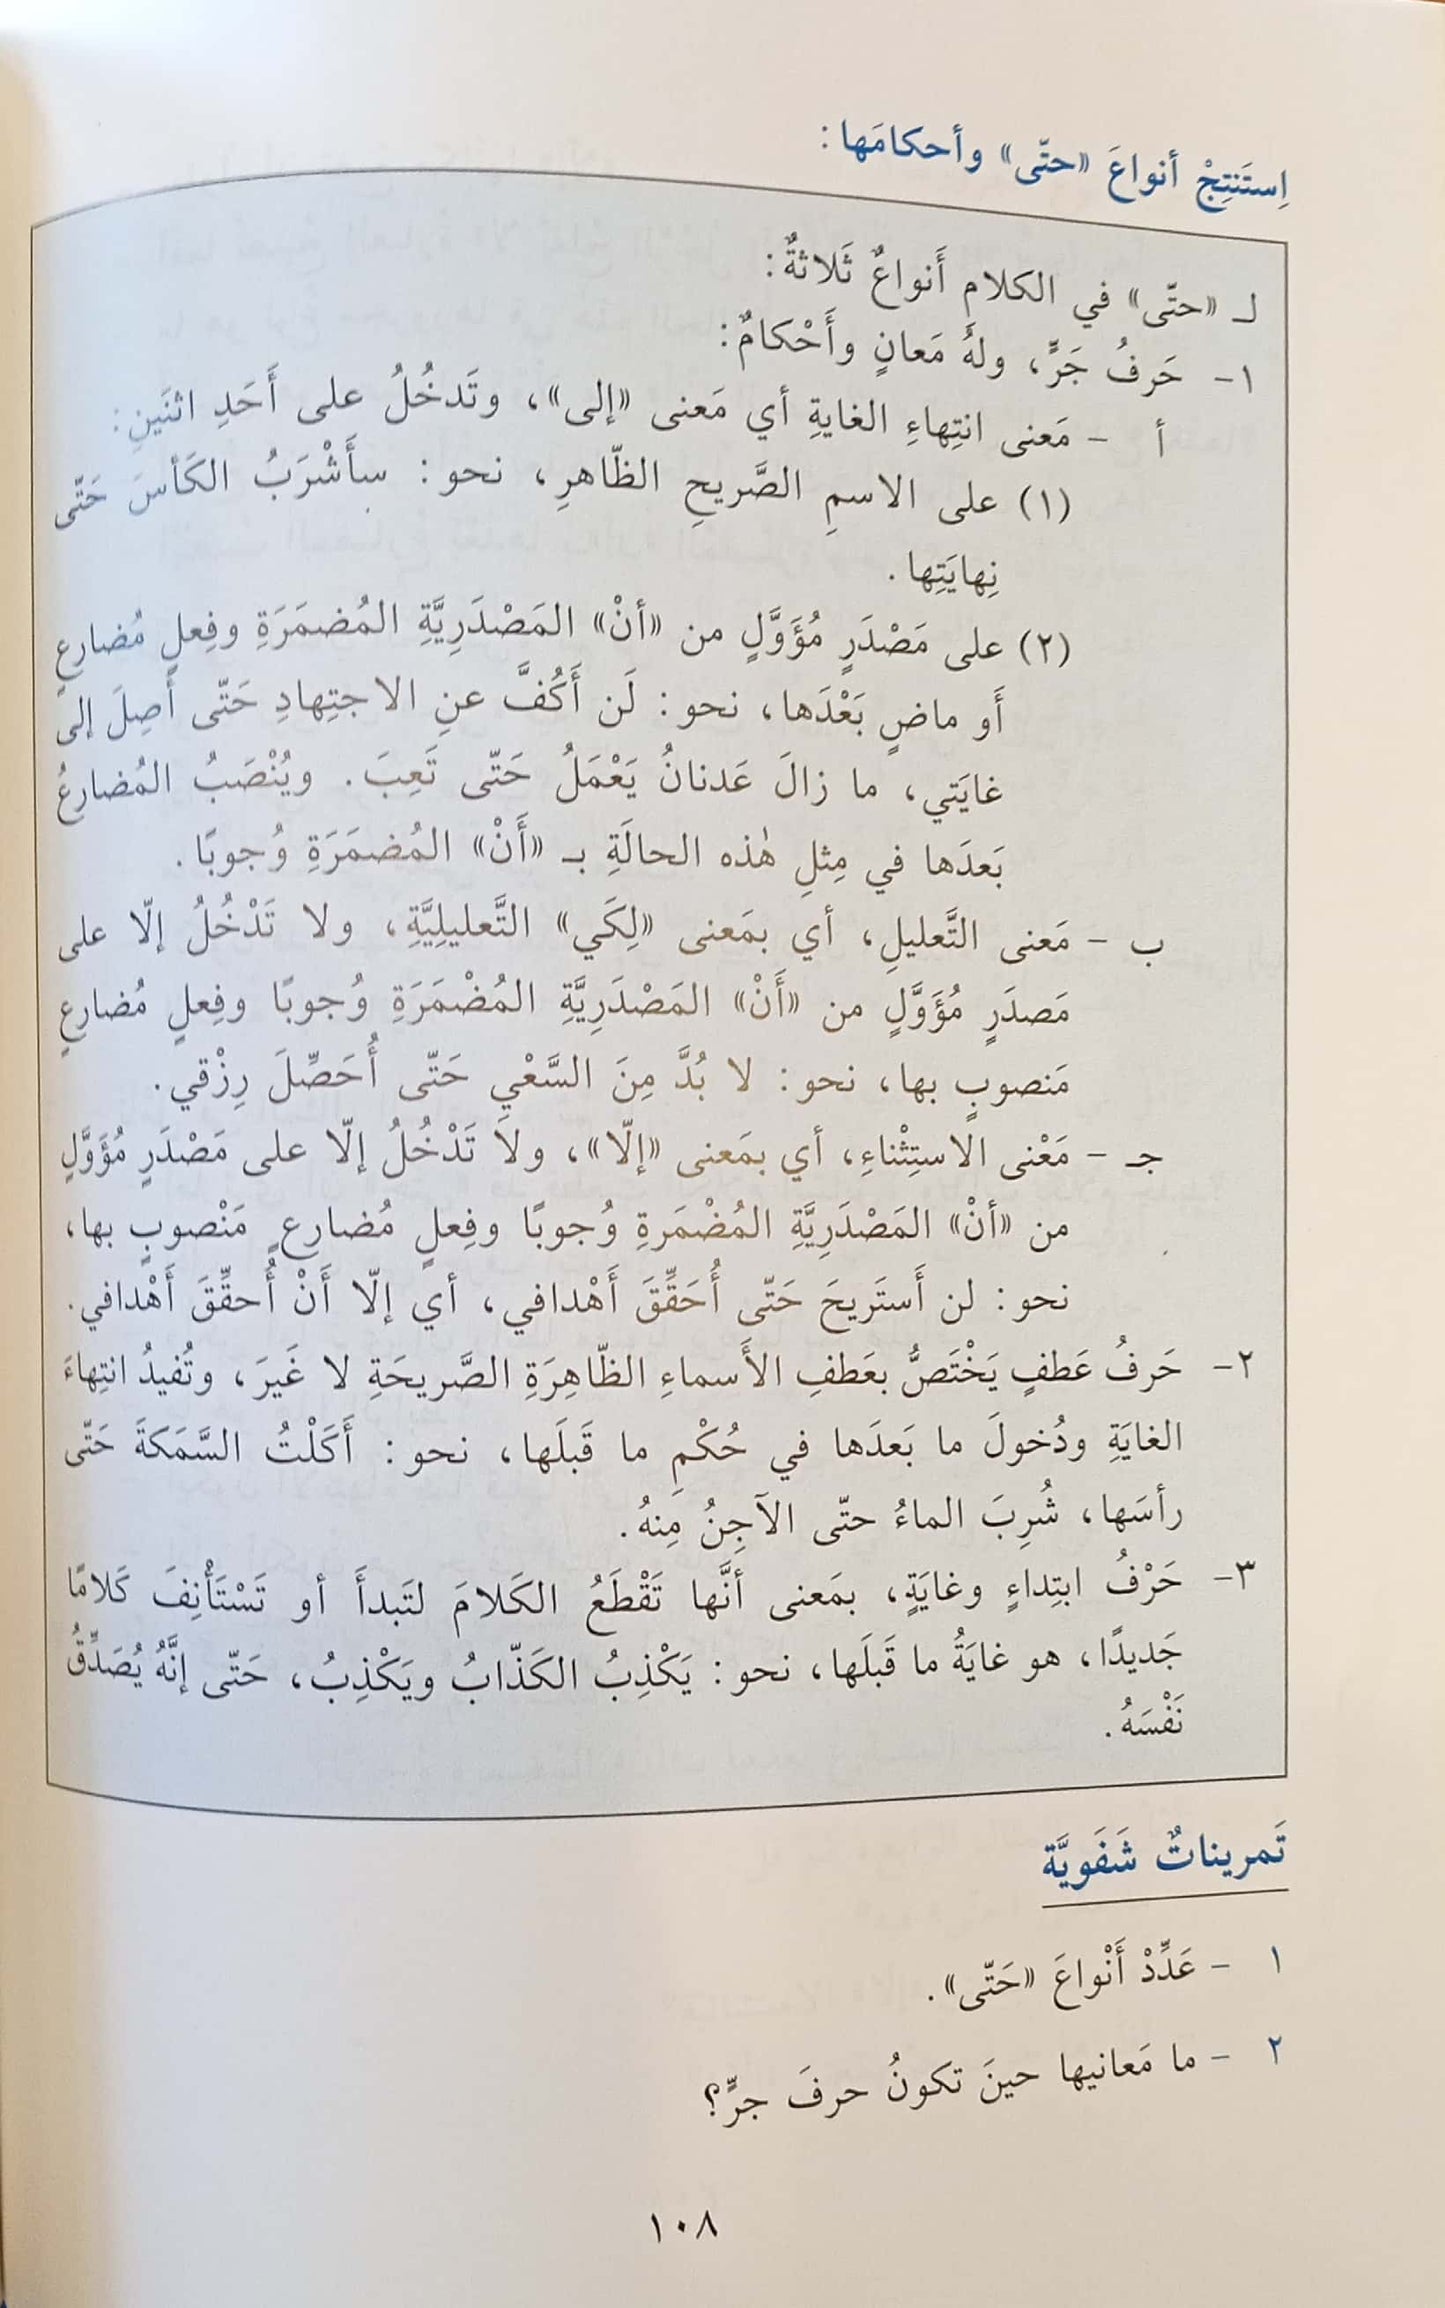 اِستَنتِجْ أنواعَ «حتّى» وأحكامَها:
لـ «حتّى» في الكلامِ أَنواعٌ ثَلاثةٌ:
١- حَرفُ جَرٍّ، ولهُ مَعانٍ وأَحْكامٌ:
أ - مَعنى انتِهاءِ الغايةِ أي مَعنى «إلى»، وتَدخُلُ على أَحَدِ اثنَينِ:
(١) على الاسمِ الصَّريحِ الظّاهرِ، نحو: سأَشْرَبُ الكَأسَ حَتّى
نِهايَتِها.
(٢) على مَصْدَرٍ مُؤَوَّلٍ من «أنْ» المَصْدَرِيَّةِ المُضمَرَةِ وفِعلٍ مُضارعٍ
أَو ماضٍ بَعْدَها، نحو: لَن أَكُفَّ عنِ الاجتِهادِ حَتّى أَصِلَ إلى
غايَتي، ما زالَ عَدنانُ يَعْمَلُ حَتّى تَعِبَ. ويُنْصَبُ المُضارعُ
بَعدَها في مِثلِ هٰذه الحالَةِ بـ «أَنْ» المُضمَرَةِ وُجوبًا.
ب - مَعنى التَّعليلِ، أي بمَعنى «لِكَي» التَّعليلِيَّةِ، ولا تَدْخُلُ إلّا على
مَصدَرٍ مُؤَوَّلٍ من «أَنْ» المَصْدَرِيَّةِ المُضْمَرَةِ وُجوبًا وفِعلٍ مُضارعٍ
مَنصوبٍ بها، نحو: لا بُدَّ مِنَ السَّعْيِ حَتّى أُحَصِّلَ رِزْقي.
جـ - مَعْنى الاستِثْناءِ، أي بمَعنى «إلّا»، ولا تَدْخُلُ إلّا على مَصْدَرٍ مُؤَوَّلٍ
من «أنْ» المَصْدَرِيَّةِ المُضْمَرةِ وُجوبًا وفِعلٍ مُضارعٍ مَنْصوبٍ بها،
نحو: لن أَستَريحَ حَتّى أُحَقِّقَ أَهْدافي، أي إلّا أَنْ أُحقِّقَ أَهْدافي.
٢- حَرفُ عَطفٍ يَخْتَصُّ بعَطفِ الأَسماءِ الظّاهِرَةِ الصَّريحَةِ لا غَيرَ، وتُفيدُ انتِهاءَ
الغايَةِ ودُخولَ ما بَعدَها في حُكْمِ ما قَبلَها، نحو: أَكَلْتُ السَّمَكةَ حَتّى
رأسَها، شُرِبَ الماءُ حتّى الآجِنُ مِنهُ.
٣- حَرْفُ ابتِداءٍ وغايَةٍ، بمَعنى أنَّها تَقْطَعُ الكَلامَ لتَبدأَ أو تَسْتَأْنِفَ كَلامًا
جَديدًا، هو غايَةُ ما قَبلَها، نحو: يَكْذِبُ الكَذّابُ ويَكْذِبُ، حَتّى إنَّهُ يُصَدِّقُ
نَفْسَهُ.
تَمريناتٌ شَفَويَّة
١ - عَدِّدْ أَنْواعَ «حَتّى».
٢ - ما مَعانيها حينَ تكونُ حرفَ جرٍّ؟
١٠٨